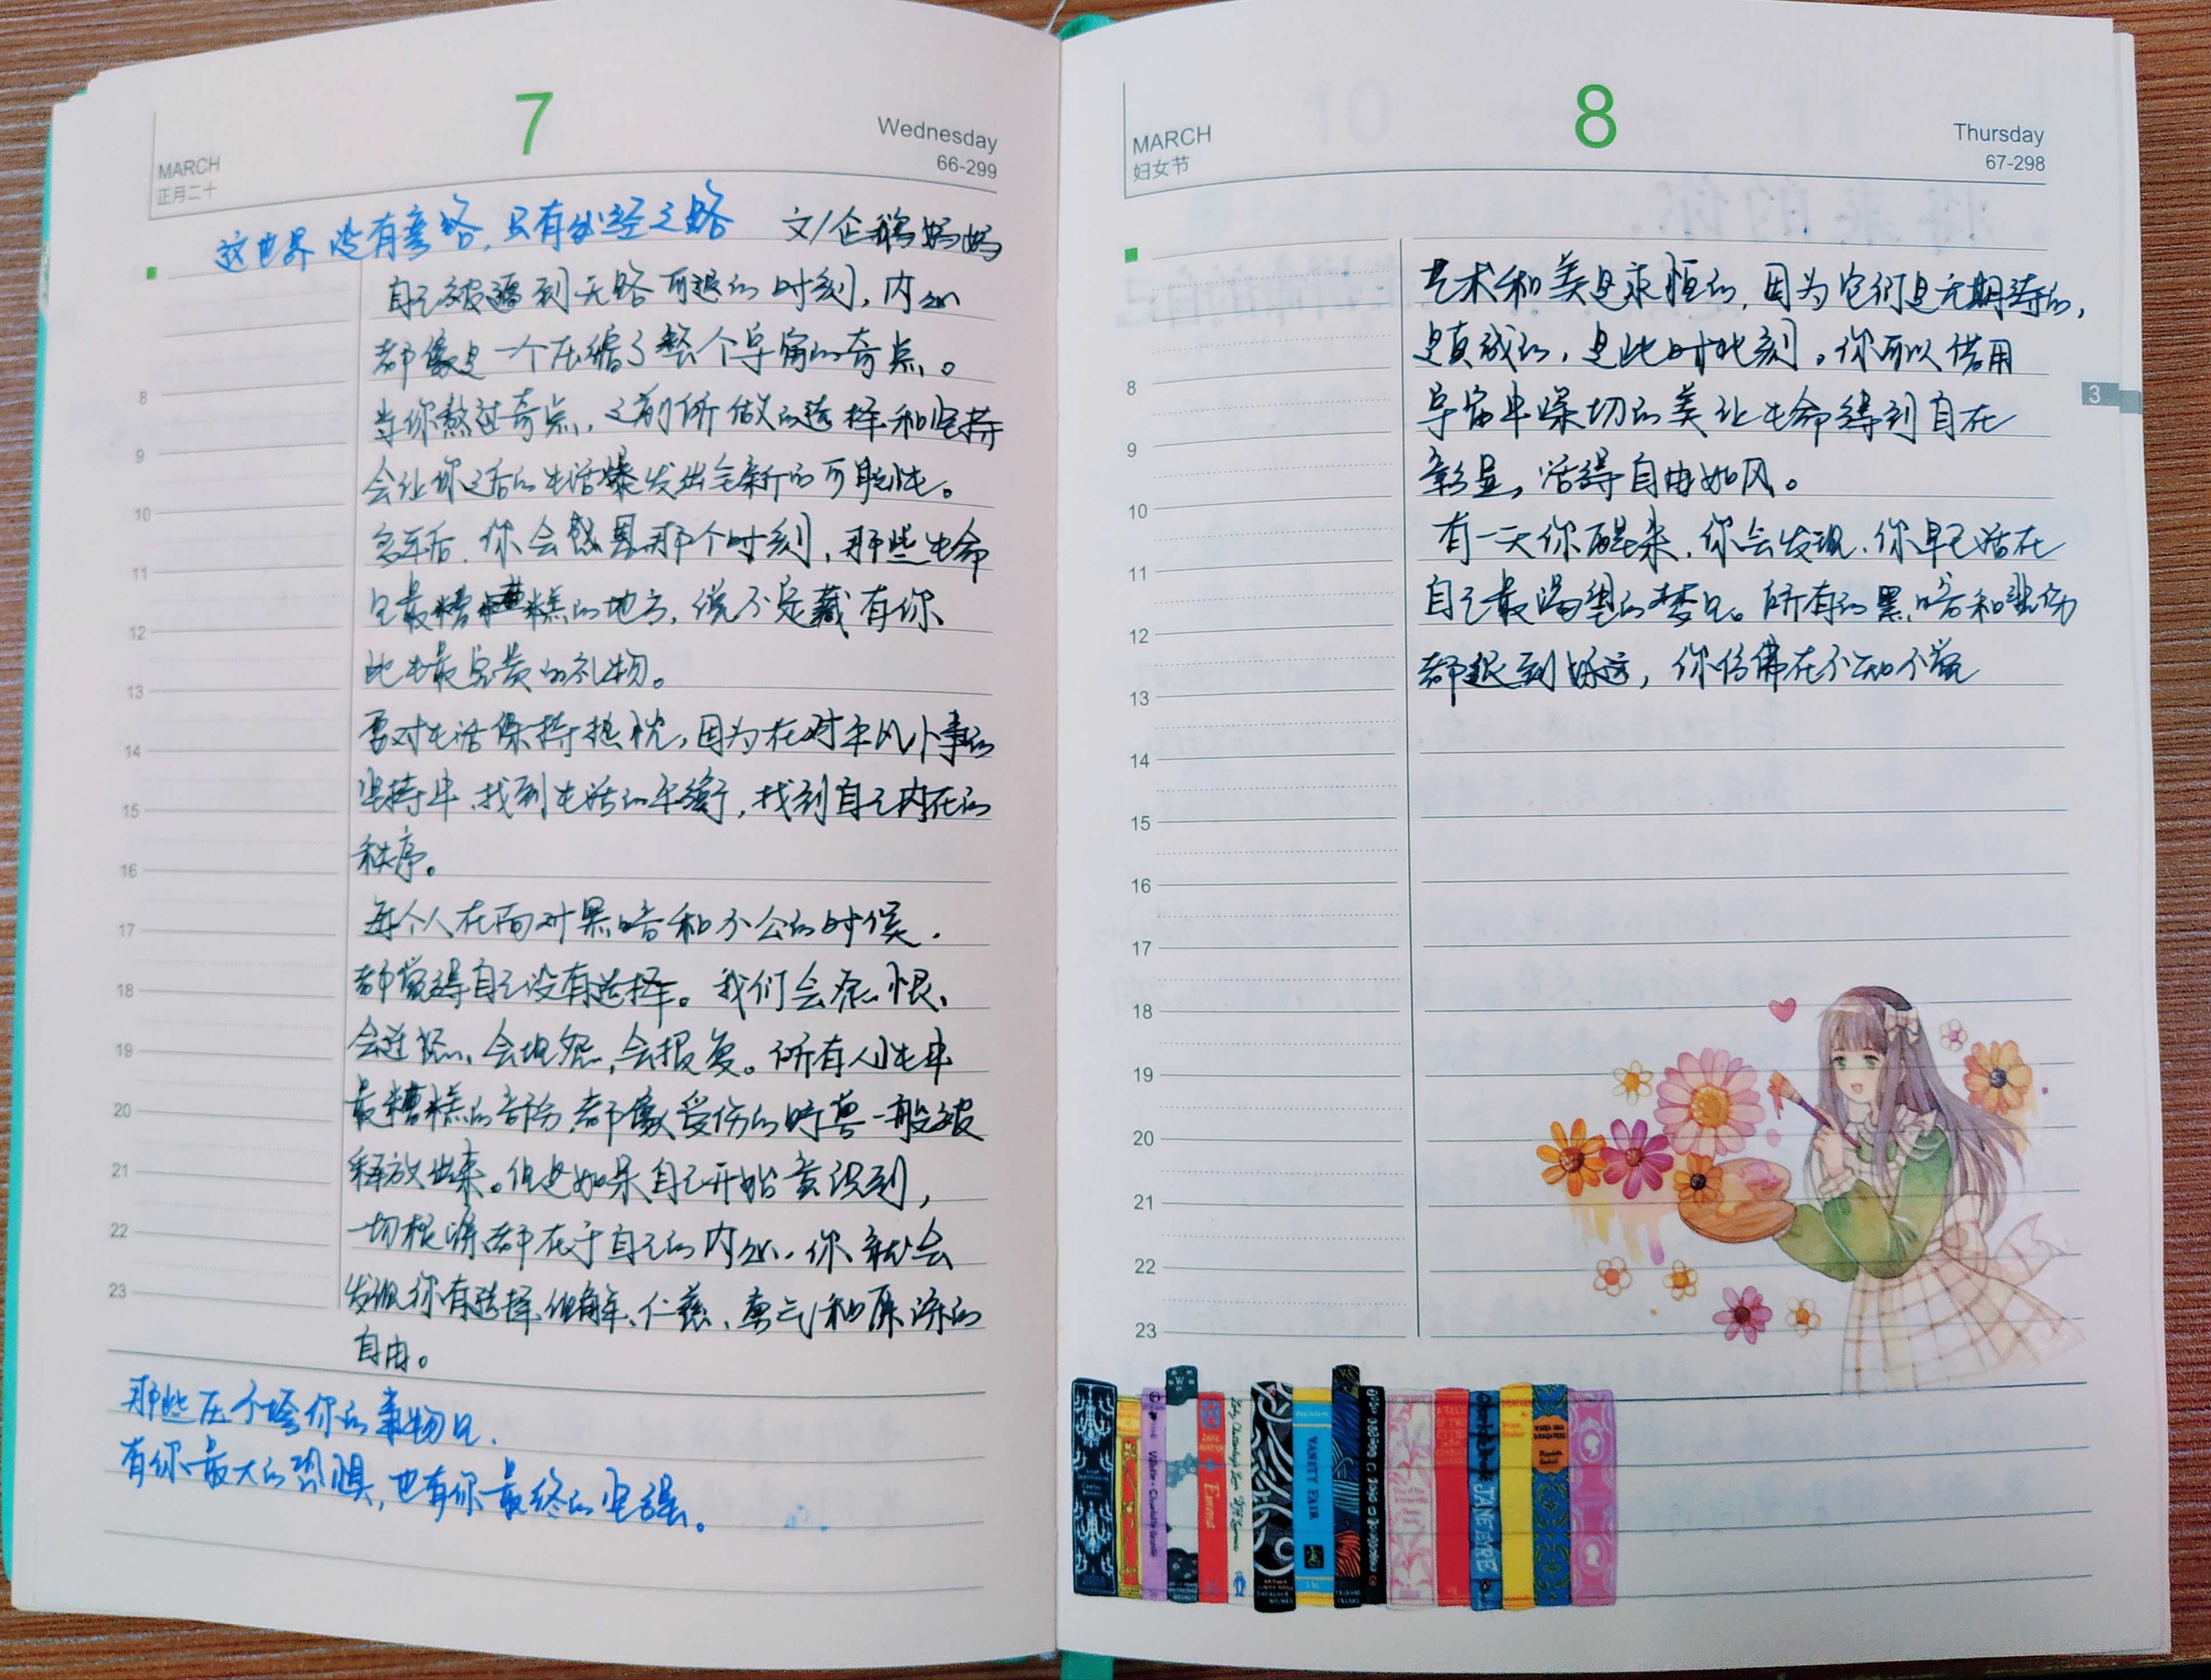 7
MARCH
正月二十
Wednesday
66-299
这世界没有弯路，只有必经之路 文/企鹅妈妈
自己被逼到无路可退的时刻，内心
都像是一个压缩了整个宇宙的奇点。
当你熬过奇点，之前所做的选择和坚持
会让你之后的生活爆发出全新的可能性。
多年后，你会感恩那个时刻，那些生命
里最糟糕的地方，说不定藏有你
此生最宝贵的礼物。
要对生活保持热忱，因为在对平凡小事的
坚持中，找到生活的平衡，找到自己内在的
秩序。
每个人在面对黑暗和不公的时候，
都觉得自己没有选择。我们会怨恨、
会迁怒、会抱怨，会报复。所有人生中
最糟糕的部分，都像受伤的野兽一般被
释放出来。但是如果自己开始意识到，
一切根源都在于自己的内心，你就会
发现你有选择、和解、仁慈、勇气和原谅的
自由。
那些压不垮你的事物里，
有你最大的恐惧，也有你最终的坚强。
8
9
10
11
12
13
14
15
16
17
18
19
20
21
22
23
8
MARCH
妇女节
Thursday
67-298
3
艺术和美是永恒的，因为它们是无期待的，
是真诚的，是此时此刻。你可以借用
宇宙中深切的美让生命得到自在
彰显，活得自由如风。
有一天你醒来，你会发现，你早已活在
自己最渴望的梦里。所有的黑暗和悲伤
都退到身后，你仿佛在不知不觉
8
9
10
11
12
13
14
15
16
17
18
19
20
21
22
23
Emma
VANITY FAIR
JANE EYRE